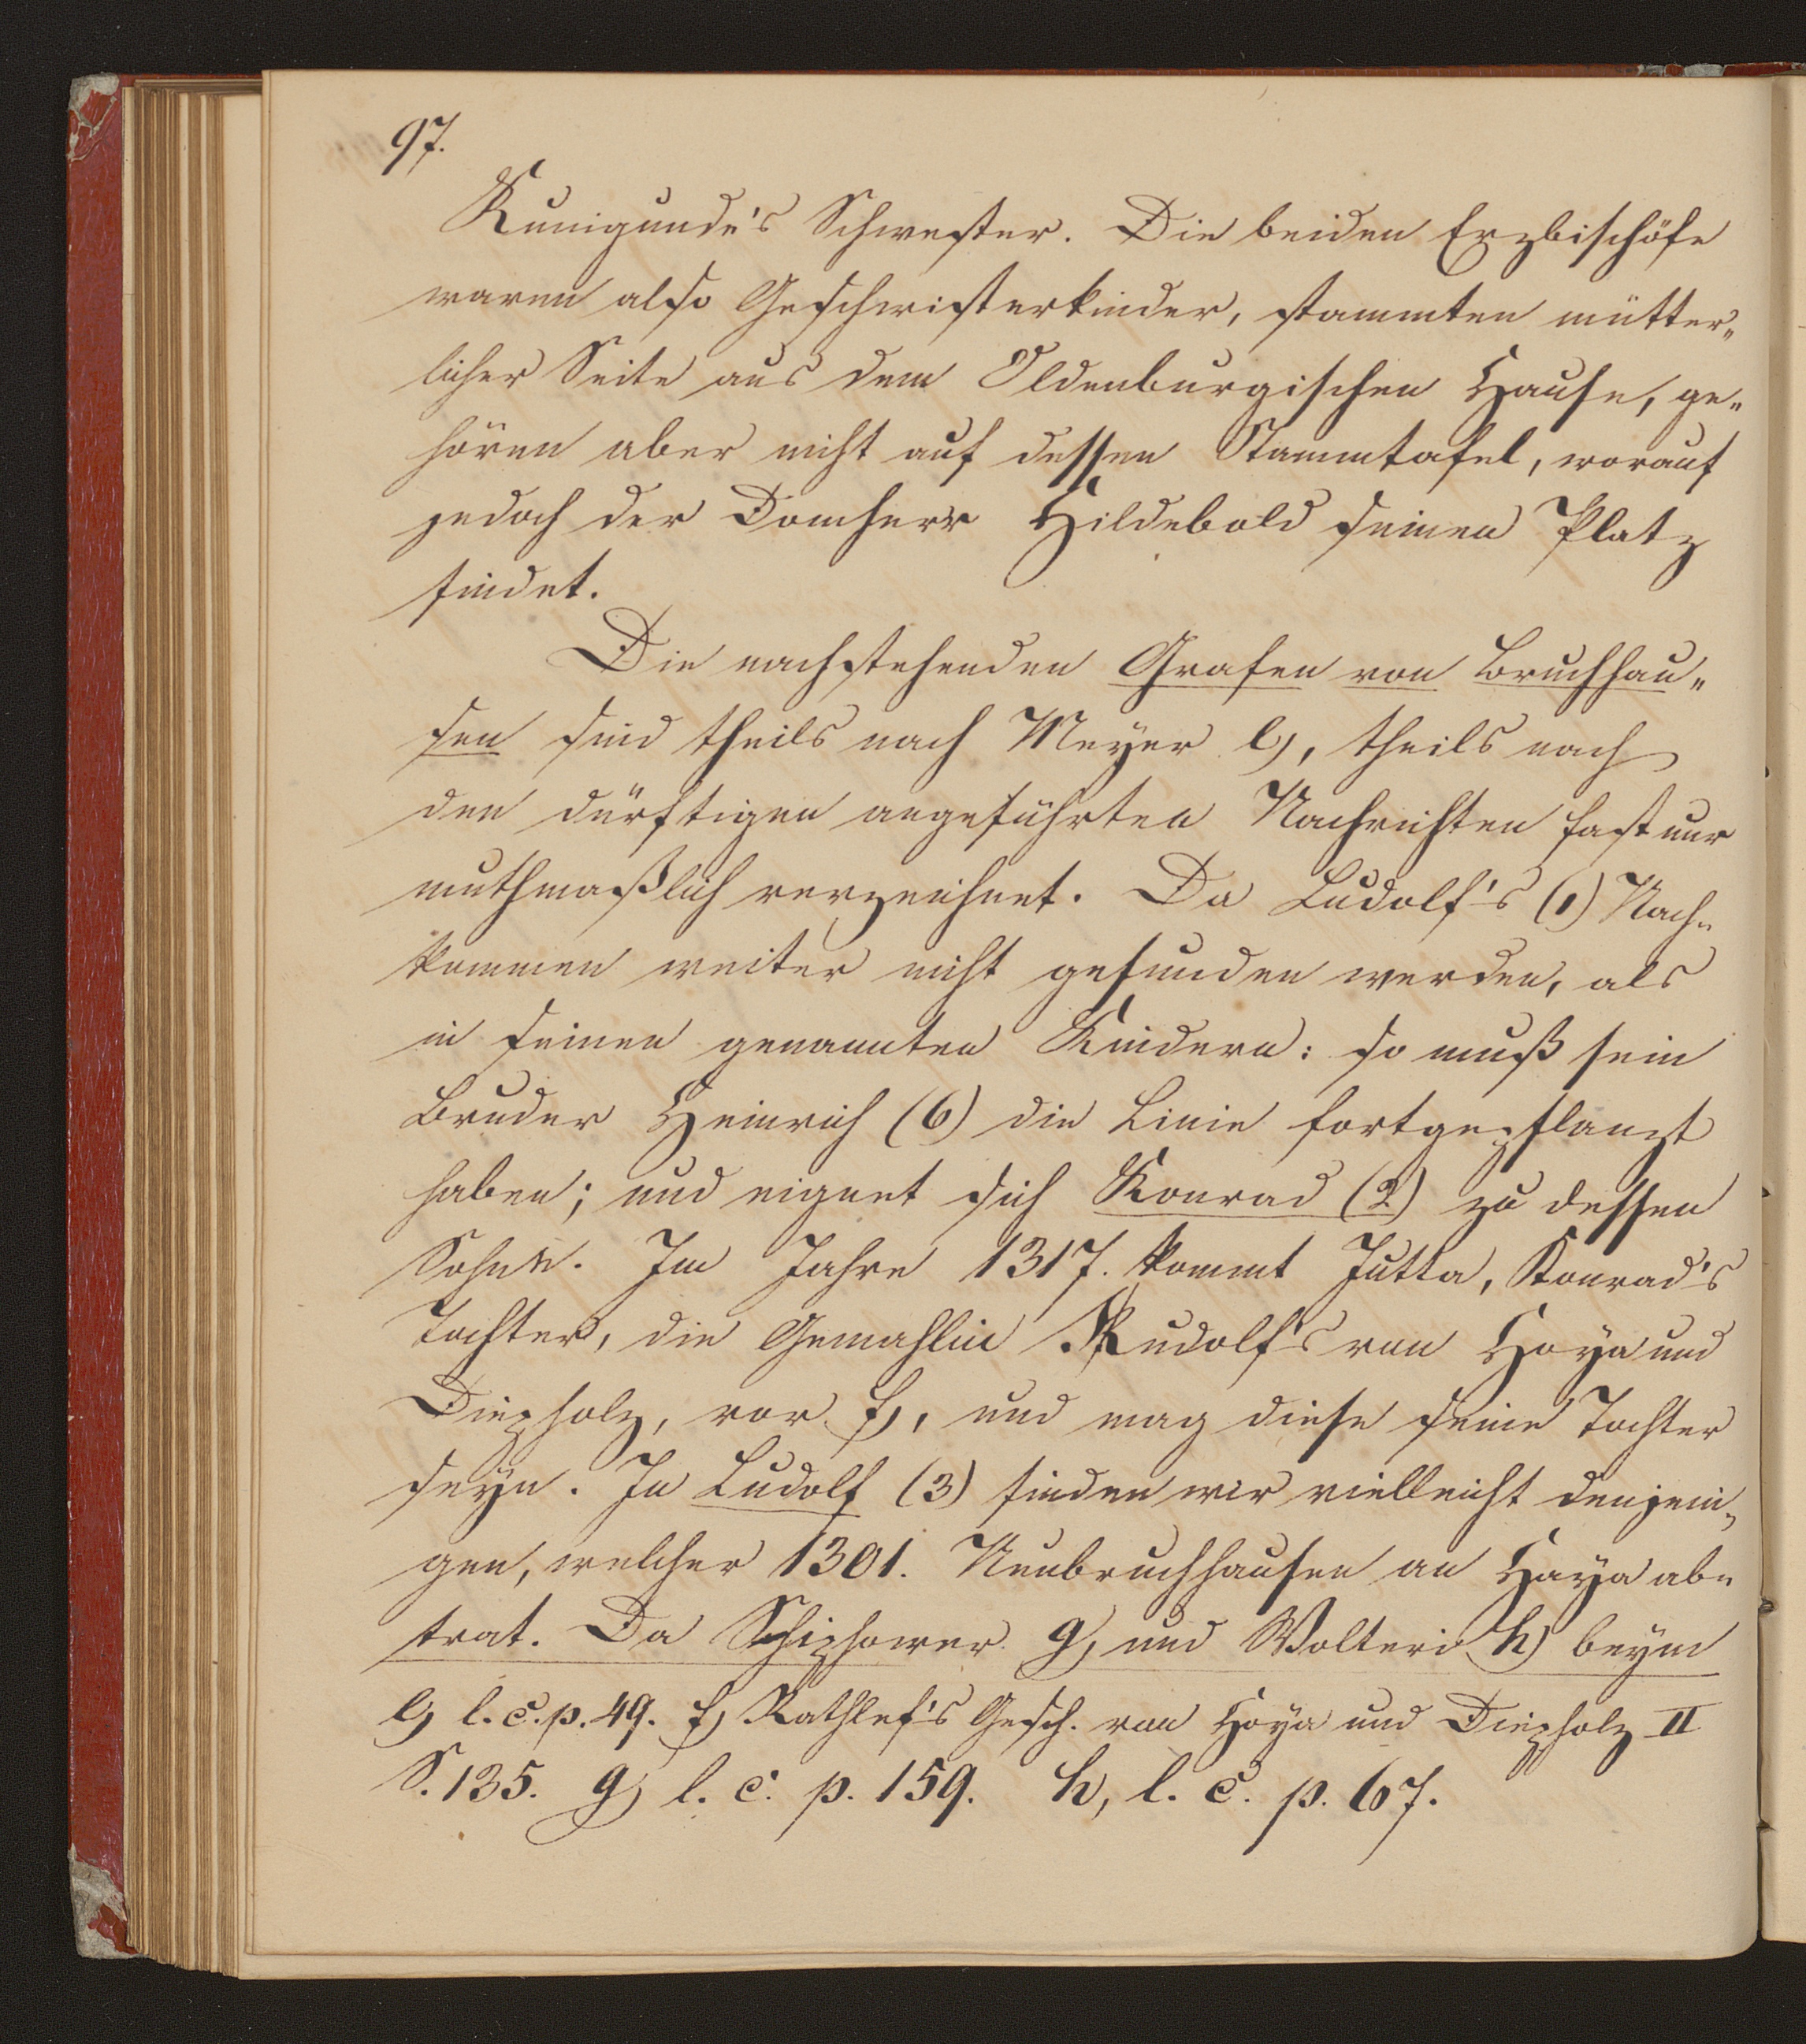 97.
Kunigunde's Schwester. Die beiden Erzbischöfe
waren also Geschwisterkinder, stammten mütter„
licher Seite aus dem Oldenburgischen Hause, ge„
hören aber nicht auf dessen Stammtafel, worauf
jedoch der Domherr Hildebold seinen Platz
findet.
Die nachstehenden Grafen von Bruchhau„
sen sind theils nach Meyer e), theils nach
den dürftigen angeführten Nachrichten fast nur
muthmaßlich verzeichnet. Da Ludolf's (1) Nach„
kommen weiter nicht gefunden werden, als
in seinen genannten Kindern: so muß sein
Bruder Heinrich (6) die Linie fortgepflanzt
haben; und eignet sich Konrad (2) zu dessen
Sohne. Im Jahre 1317. kommt Jutta, Konrad's
Tochter, die Gemahlin Rudolf's von Hoya und
Diepholz, vor f), und mag diese seine Tochter
seyn. In Ludolf (3) finden wir vielleicht denjeni„
gen, welcher 1301. Neubruchhausen an Hoya ab„
trat. Da Schiphower g) und Wolteri h) beym
e) l. c. p. 49. f) Rathlef's Gesch. von Hoya und Diepholz II
S. 135. g) l. c. p. 159. h, l. c. p. 67.